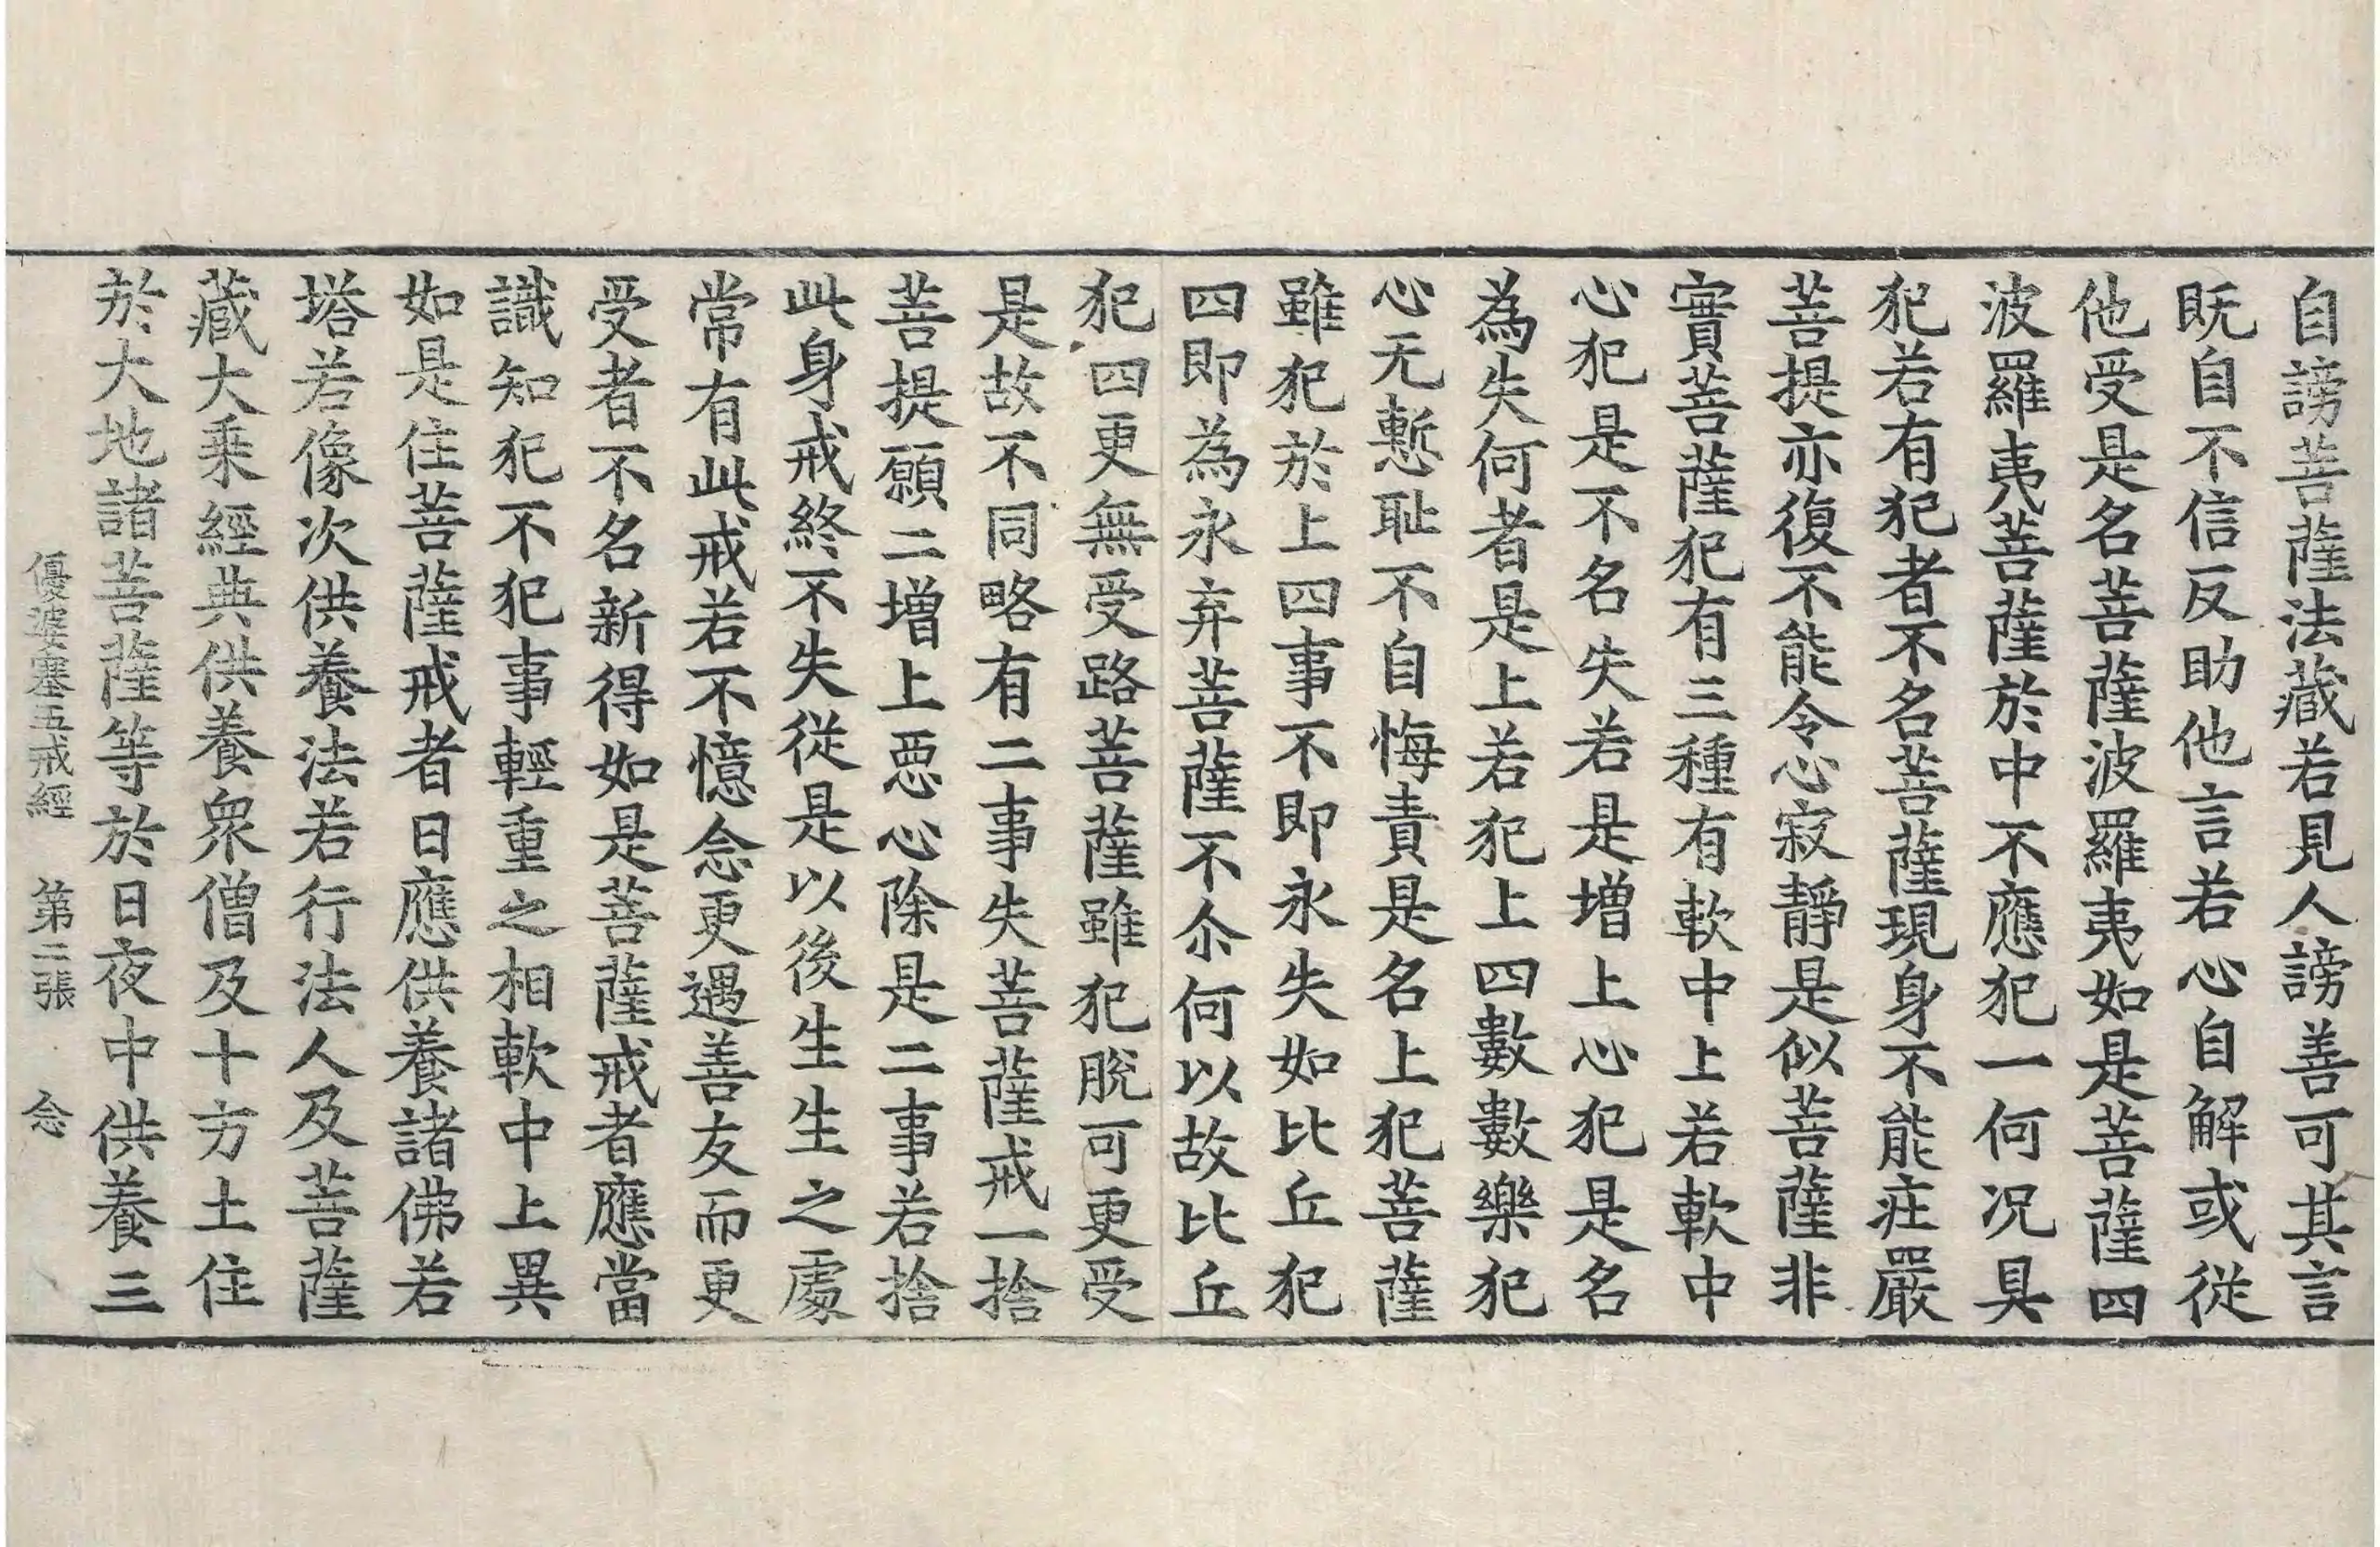 自謗菩薩法藏若見人謗善可其言
既自不信反助他言若心自解或從
他受是名菩薩波羅夷如是菩薩四
波羅夷菩薩於中不應犯一何況具
犯若有犯者不名菩薩現身不能庄嚴
菩提亦復不能令心寂靜是似菩薩非
實菩薩犯有三種有軟中上若軟中
心犯是不名失若是增上心犯是名
為失何者是上若犯上四數數樂犯
心无慙耻不自悔責是名上犯菩薩
雖犯於上四事不即永失如比丘犯
四即為永弃菩薩不尒何以故比丘
犯四更無受路菩薩雖犯脫可更受
是故不同略有二事失菩薩戒一捨
菩提願二增上惡心除是二事若捨
此身戒終不失從是以後生生之處
常有此戒若不憶念更遇善友而更
受者不名新得如是菩薩戒者應當
識知犯不犯事輕重之相軟中上異
如是住菩薩戒者日應供養諸佛若
塔若像次供養法若行法人及菩薩
藏大乘經典供養眾僧及十方土住
於大地諸菩薩等於日夜中供養三
優婆塞五戒經 第二張 念